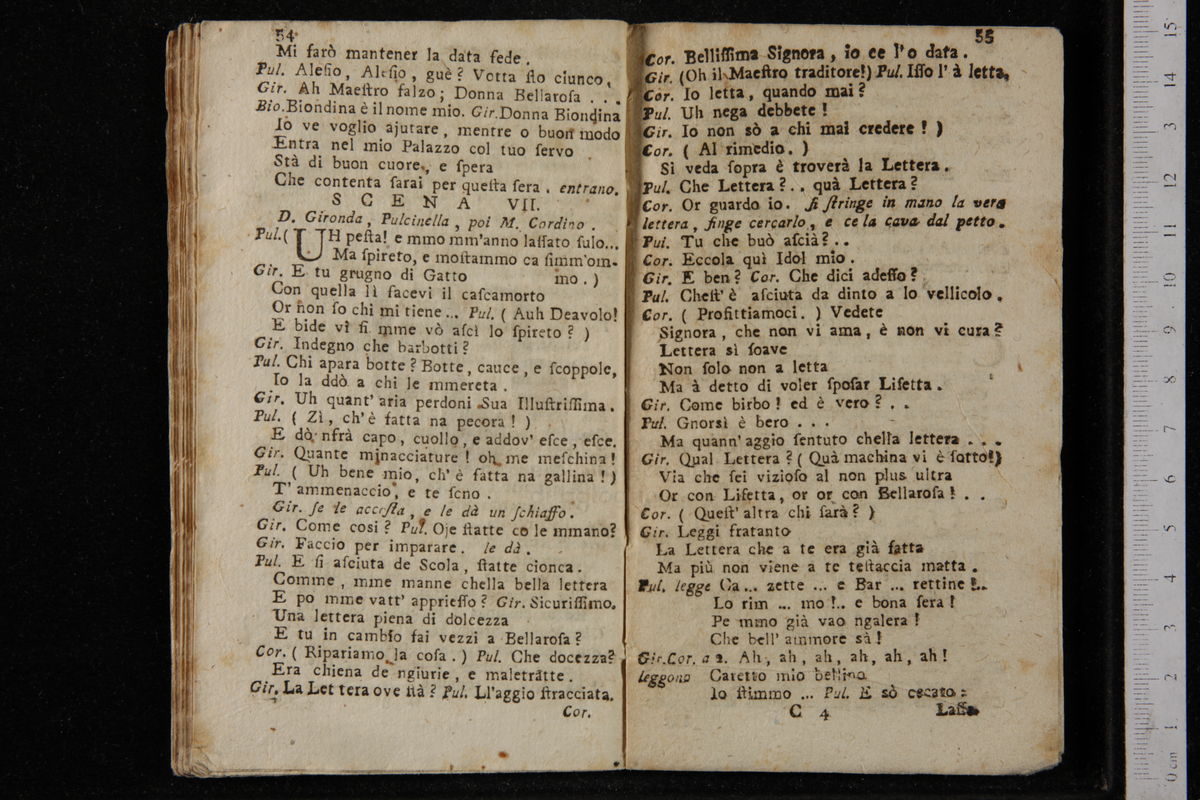 54
Mi farò mantener la data fede.
Pul. Aleſio, Aleſio, guè? Votta ſto ciunco.
Gir. Ah Maeſtro falzo; Donna Bellaroſa . . .
Bio. Biondina è il nome mio. Gir. Donna Biondina
Io ve voglio ajutare, mentre o buon modo
Entra nel mio Palazzo col tuo ſervo
Stà di buon cuore, e ſpera
Che contenta ſarai per queſta ſera. entrano.
S C E N A VII.
D. Gironda, Pulcinella, poi M. Cordino.
Pul. ( UH peſta! e mmo mm'anno laſſato ſulo...
Ma ſpireto, e moſtammo ca ſimm'om-
Gir. E tu grugno di Gatto mo. )
Con quella lì facevi il caſcamorto
Or non ſo chi mi tiene... Pul. ( Auh Deavolo!
E bide vì ſi mme vò aſcì lo ſpireto? )
Gir. Indegno che barbotti?
Pul. Chi apara botte? Botte, cauce, e ſcoppole,
Io la ddò a chi le mmereta.
Gir. Uh quant' aria perdoni Sua Illuſtriſſima.
Pul. ( Zì, ch'è fatta na pecora! )
E dò nfrà capo, cuollo, e addov' eſce, eſce.
Gir. Quante minacciature! oh me meſchina!
Pul. ( Uh bene mio, ch' è fatta na gallina! )
T' ammenaccio, e te ſeno.
Gir. ſe le accoſta, e le dà un ſchiaffo.
Gir. Come così? Pul. Oje ſtatte co le mmano?
Gir. Faccio per imparare. le dà.
Pul. E ſi aſciuta de Scola, ſtatte cionca.
Comme, mme manne chella bella lettera
E po mme vatt' apprieſſo? Gir. Sicuriſſimo.
Una lettera piena di dolcezza
E tu in cambio fai vezzi a Bellaroſa?
Cor. ( Ripariamo la coſa. ) Pul. Che docezza?
Era chiena de ngiurie, e maletratte.
Gir. La Let tera ove ſtà? Pul. Ll'aggio ſtracciata.
Cor.
55
Cor. Belliſſima Signora, io ce l'o data.
Gir. (Oh il Maeſtro traditore!) Pul. Iſſo l' à letta,
Cor. Io letta, quando mai?
Pul. Uh nega debbete!
Gir. Io non sò a chi mai credere! )
Cor. ( Al rimedio. )
Si veda ſopra è troverà la Lettera.
Pul. Che Lettera?.. quà Lettera?
Cor. Or guardo io. ſi ſtringe in mano la vera
lettera, finge cercarlo, e ce la cava dal petto.
Pul. Tu che buò aſcià?..
Cor. Eccola quì Idol mio.
Gir. E ben? Cor. Che dici adeſſo?
Pul. Cheſt' è aſciuta da dinto a lo vellicolo.
Cor. ( Profittiamoci. ) Vedete
Signora, che non vi ama, è non vi cura?
Lettera sì ſoave
Non ſolo non a letta
Ma à detto di voler ſpoſar Liſetta.
Gir. Come birbo! ed è vero? . .
Pul. Gnorsì è bero . . .
Ma quann' aggio ſentuto chella lettera . . .
Gir. Qual Lettera? ( Quà machina vi è ſotto!)
Via che ſei vizioſo al non plus ultra
Or con Liſetta, or or con Bellaroſa! . .
Cor. ( Queſt' altra chi ſarà? )
Gir. Leggi fratanto
La Lettera che a te era già fatta
Ma più non viene a te teſtaccia matta.
Pul. legge Ca... zette ... e Bar ... rettine!..
Lo rim ... mo!.. e bona ſera!
Pe mmo già vao ngalera!
Che bell' ammore sà!
Gir. Cor. a 2. Ah, ah, ah, ah, ah, ah!
leggono Caretto mio bellino
Io ſtimmo ... Pul. E sò cecato:
C 4 Laſſa